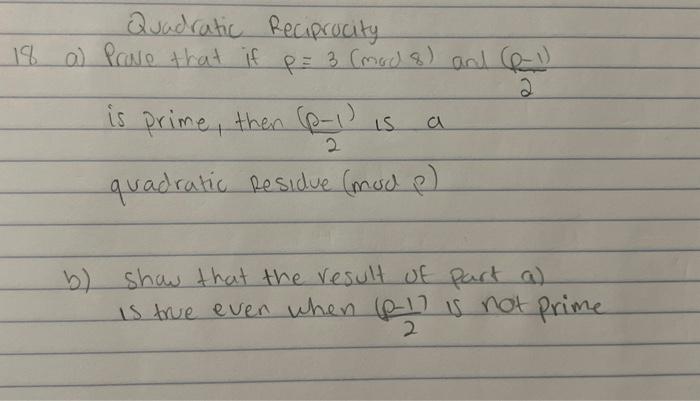 Quadratic Reciprocity
18 a) Prove that if p ≡ 3 (mod 8) and (p-1)/2
is prime, then (p-1)/2 is a
quadratic Residue (mod p)
b) show that the result of part a)
is true even when (p-1)/2 is not prime